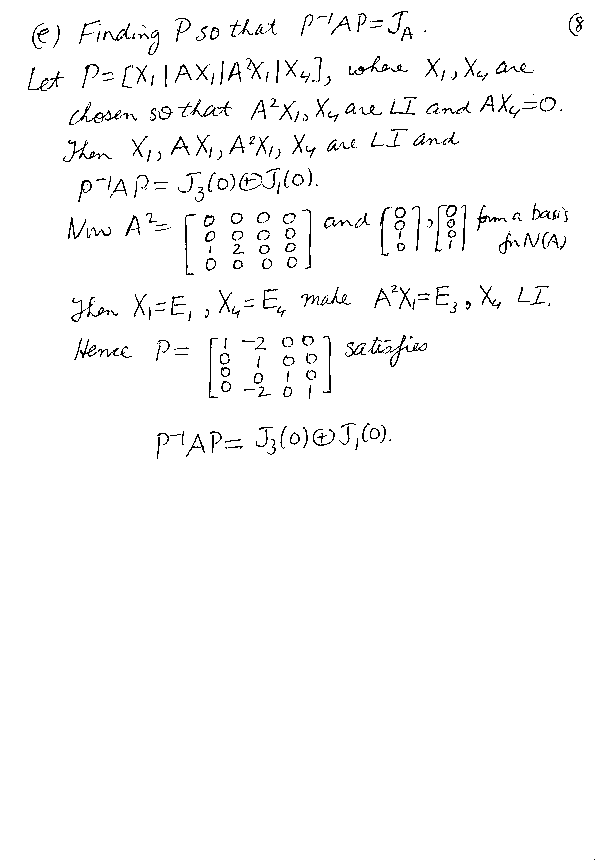 (e) Finding P so that P⁻¹AP = J_A. (8
Let P = [X₁ | AX₁ | A²X₁ | X₄], where X₁, X₄ are
chosen so that A²X₁, X₄ are LI and AX₄ = 0.
Then X₁, AX₁, A²X₁, X₄ are LI and
P⁻¹AP = J₃(0)⊕J₁(0).
Now A² = [0 0 0 0; 0 0 0 0; 1 2 0 0; 0 0 0 0] and [0; 0; 1; 0], [0; 0; 0; 1] form a basis for N(A)
Then X₁ = E₁, X₄ = E₄ make A²X₁ = E₃, X₄ LI.
Hence P = [1 -2 0 0; 0 1 0 0; 0 0 1 0; 0 -2 0 1] satisfies
P⁻¹AP = J₃(0)⊕J₁(0).